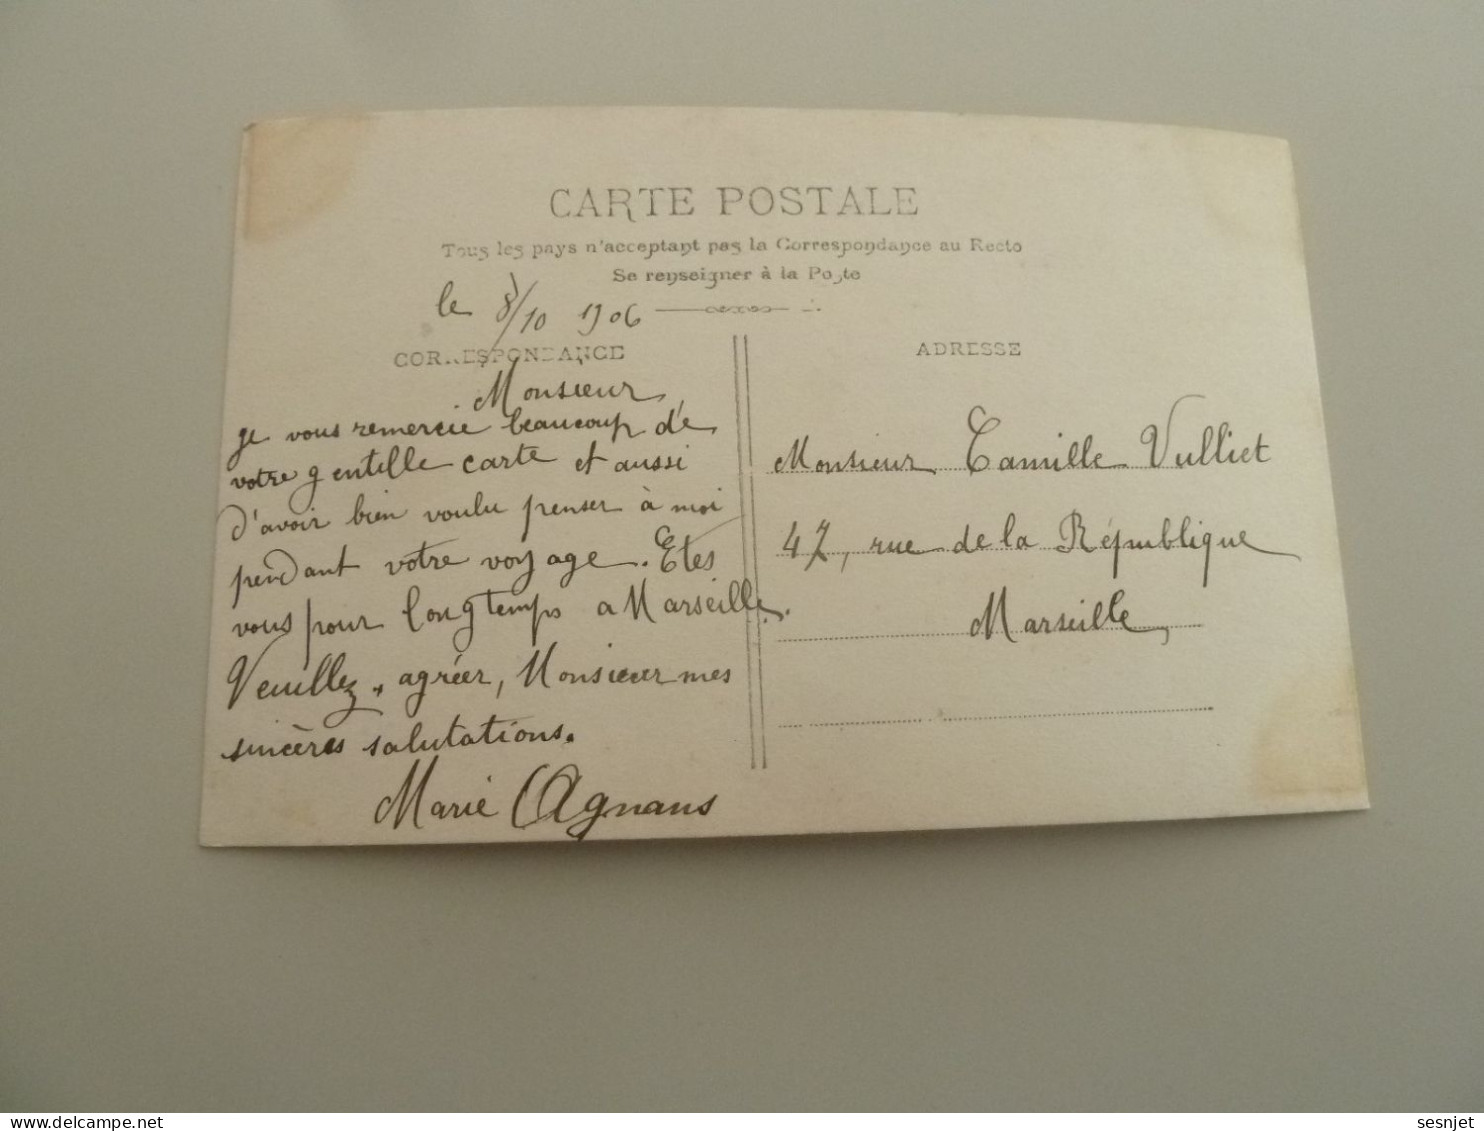 CARTE POSTALE
Tous les pays n'acceptant pas la Correspondance au Recto
Se renseigner à la Poste
le 8/10 1906
CORRESPONDANCE
Monsieur
je vous remercie beaucoup de
votre gentille carte et aussi
d'avoir bien voulu penser à moi
pendant votre voyage. Etes
vous pour longtemps a Marseille.
Veuillez, agréer, Monsieur mes
sincères salutations.
Marie Agnans
ADRESSE
Monsieur Camille Vulliet
47, rue de la République
Marseille
© DELCAMPE
sesnjet